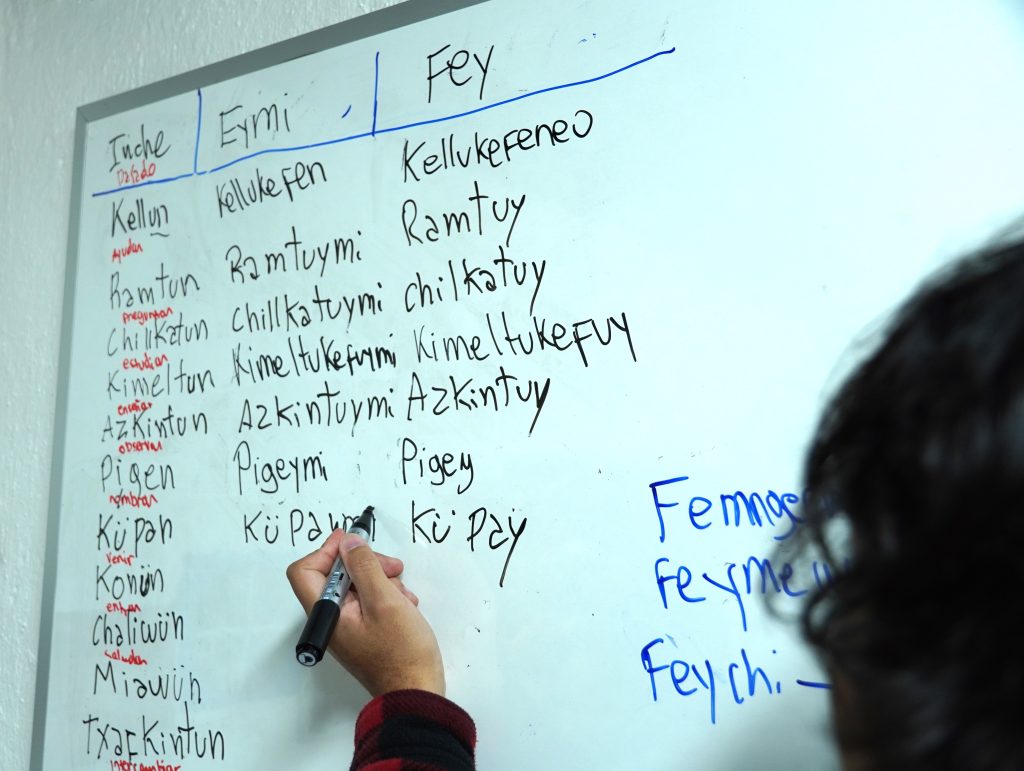 Inche Eymi Fey
Pasado
Kellun Kellukefen Kellukefeneo
Ayudar
Ramtun Ramtuymi Ramtuy
preguntar
Chillkatun Chillkatuymi chilkatuy
estudiar
Kimeltun Kimeltukefuymi Kimeltukefuy
enseñar
Azkintun Azkintuymi Azkintuy
observar
Pigen Pigeymi Pigey
nombrar
Küpan Küpaymi Küpay
Venir
Konün
entrar
Chaliwün
Saludar
Miawün
Txafkintun
intercambiar
Feychi –